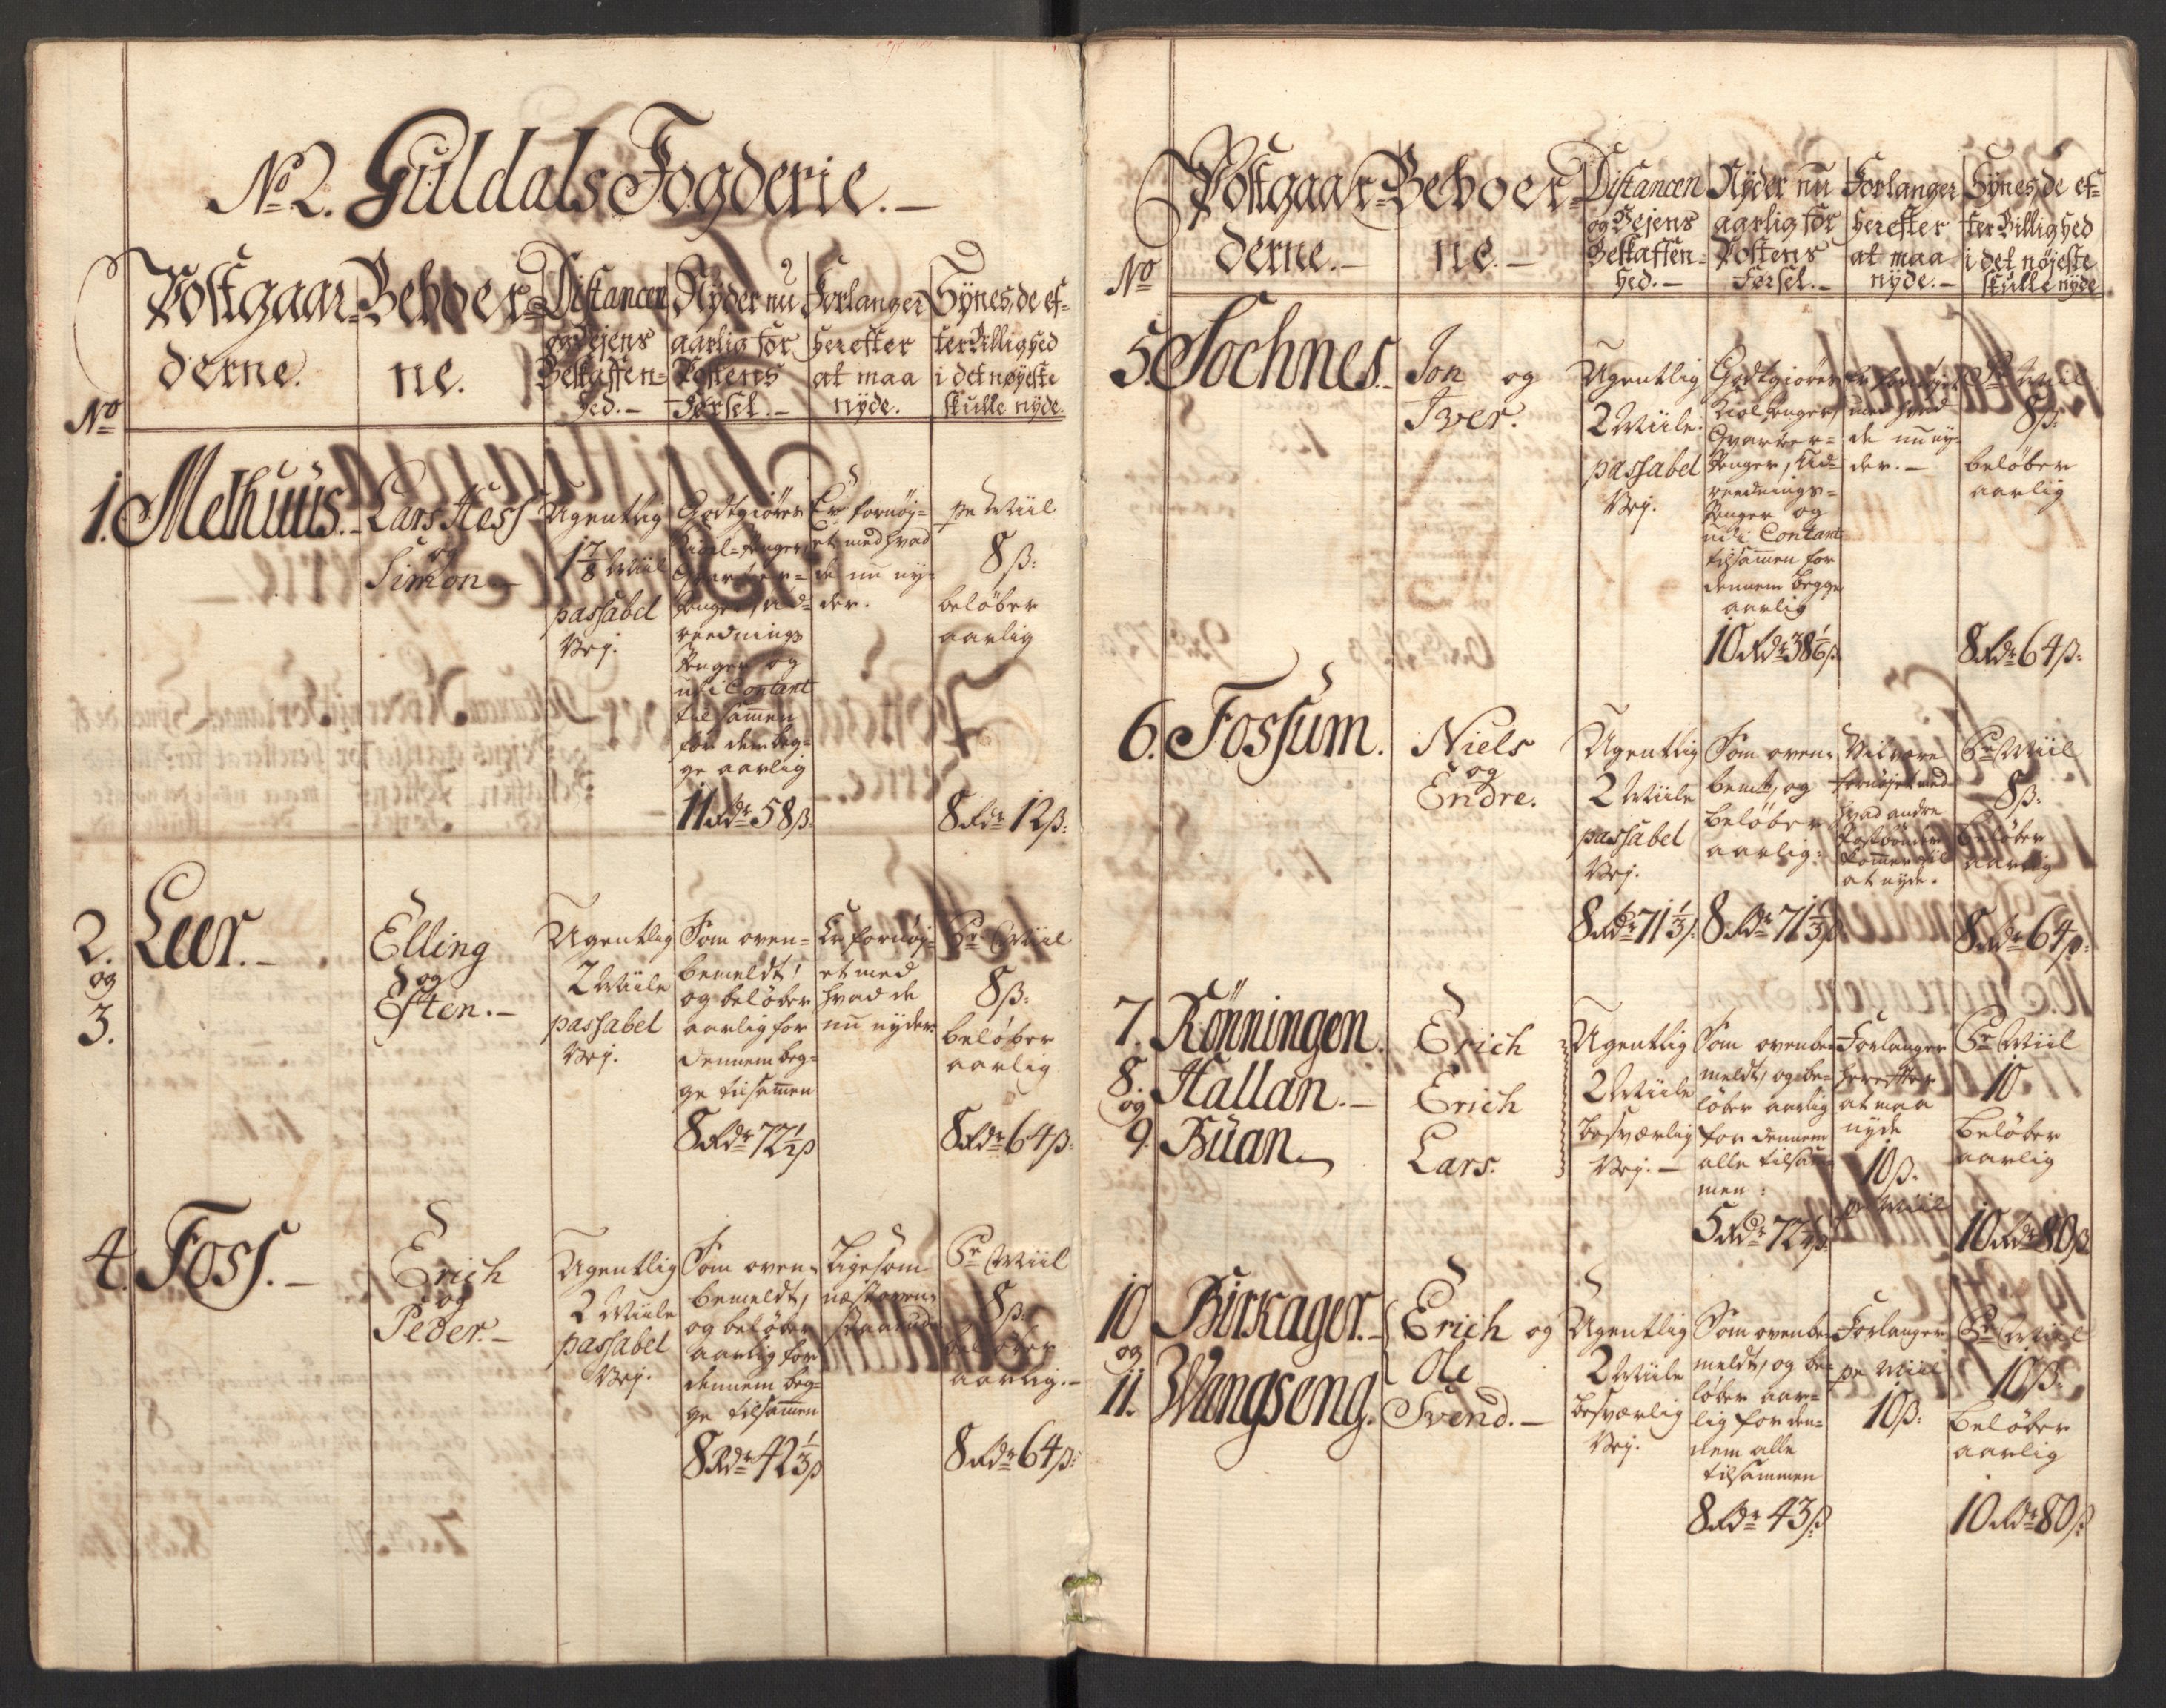 No 2. Guldals Fogderie.-
No
Postgaar-
derne.
Beboer-
ne.
Distancen
og Vejens
Beskaffen-
hed.-
Nyder nu
aarlig for
Postens
Førsel.-
Forlanger
herefter
at maa
nyde.
Synes, de ef-
ter Billighed
i det nøyeste
skulle nyde.
1. Melhuus.-
Lars Hess
og
Simon-
Ugentlig
1 7/8 Miil
passabel
Vej.
Godtgiöres
Kiol-Penger
Qvarter-
Penger, Ud-
reednings
Penger og
udi Contant
tilsamen
for dem beg-
ge aarlig
11 Rdr 58 ß:
Er fornøy-
et med hvad
de nu ny-
der.
pr Miil
8 ß:
belöber
aarlig
8 Rdr 12 ß:
2.
og
3.
Leer.-
Elling
og
Esten.-
Ugentlig
2 Miile
passabel
Vej.
Som oven-
bemeldt,
og belöber
aarlig for
dennem beg-
ge tilsamen
8 Rdr 72 1/2 ß
Er fornøy-
et med
hvad de
nu nyder
Pr Miil
8 ß:
belöber
aarlig
8 Rdr 64 ß.
4. Foss.-
Erich
og
Peder.-
Ugentlig
2 Miile
passabel
Vej.
Som oven-
bemeldt,
og belöber
aarlig for
dennem beg-
ge tilsamen
8 Rdr 42 1/3 ß
Ligesom
næstoven-
Pr Miil
8 ß:
belöber
aarlig.-
8 Rdr 64 ß:
No
Postgaar-
derne.-
Beboer-
ne.-
Distancen
og Vejens
Beskaffen-
hed.-
Nyder nu
aarlig for
Postens
Førsel.-
Forlanger
herefter
at maa
nyde.-
Synes, de ef-
ter Billighed
i det nøjeste
skulle nyde
5. Sochnes.-
Jon og
Iver.
Ugentlig
2 Miile.
passabel
Vej.
Godtgiöres
Kiol Penger,
Qvarteer-
Penger, Ud-
reednings-
Penger og
udi Contant
tilsamen for
dennem begge
aarlig
10 Rdr 38 1/6 ß.
Er fornøjet
med hvad
de nu ny-
der.-
Pr Miil
8 ß:
belöber
aarlig
8 Rdr 64 ß:
6. Fossum.
Niels
og
Endre.
Ugentlig
2 Miile
passabel
Vej.
8 Rdr 71 1/3 ß:
Som oven-
bemt, og
belöber
aarlig:
8 Rdr 71 1/3 ß
Vil være
fornøjet med
hvad andre
Postbönder
kommer til
at nyde.
Pr Miil
8 ß:
belöber
aarlig
8 Rdr 64 ß:
7. Rønningen.
8. Hallan.-
og
9. Buan
Erich
Erich
Lars.
Ugentlig
2 Miile
besværlig
Vej.-
Som ovenbe-
meldt, og be-
löber aarlig
for dennem
alle tilsam-
men:
5 Rdr 72 1/2 ß:
Forlanger
herefter
at maa
nyde
10 ß.
pr Miil
Pr Miil
10
belöber
aarlig
10 Rdr 80 ß.
10 Birkager.-
og
11. Wangseng.
Erich og
Ole
Svend.-
Ugentlig
2 Miile
besværlig
Vej.
Som ovenbe-
meldt, og be-
löber aar-
lig for den-
nem alle
tilsammen
8 Rdr 43 ß
Forlanger
pr Miil
10 ß:
Pr Miil
10 ß:
belöber
aarlig
10 Rdr 80 ß: